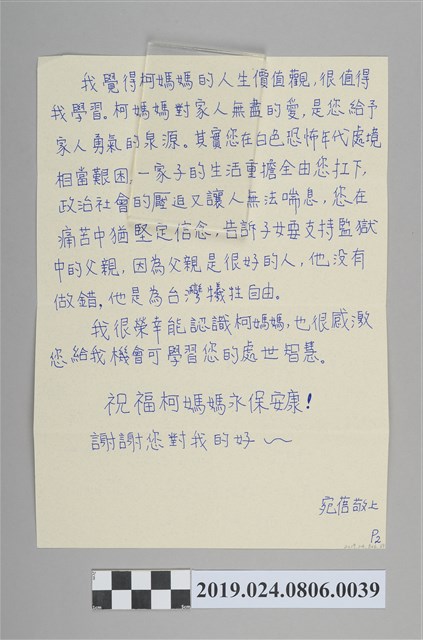 我覺得柯媽媽的人生價值觀,很值得
我學習。柯媽媽對家人無盡的愛,是您給予
家人勇氣的泉源。其實您在白色恐怖年代處境
相當艱困,一家子的生活重擔全由您扛下,
政治社會的壓迫又讓人無法喘息,您在
痛苦中猶堅定信念,告訴子女要支持監獄
中的父親,因為父親是很好的人,他没有
做錯,他是為台灣犠牲自由。
我很榮幸能認識柯媽媽,也很感激
您給我機會可學習您的處世智慧。
祝福柯媽媽永保安康!
謝謝您對我的好~
宛蓓敬上
P2
2019.024.0806.0039